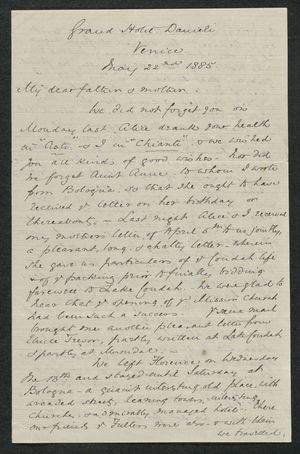 Grand Hotel Danieli
Venice
May 22nd 1885
My dear father & mother.
We did not forget you on
Monday last. Alice drank your health
in "Asti" & I in "Chianti" & we wished
you all kinds of good wishes. Nor did
we forget Aunt Annie to whom I wrote
from Bologna, so that she ought to have
received ye letter on her birthday or
thereabouts. Last night Alice & I received
my mother's letter of April 6th to us jointly,
a pleasant, long, & chatty letter, wherein
she gave us particulars of ye life
& of ye packing prior to finally bidding
farewell to Lake. We were glad to
hear that ye opening of ye Mission Church
had been such a success. Same mail
brought me another pleasant letter from
Uncle Trevor, partly written at
& partly at
We left Florence on Wednesday
the 13th and stayed until Saturday at
Bologna - a quaint interesting old place, with
arcaded streets, leaning towers, interesting
Churches & admirably managed hotel. There
our friends ye Fullers were also & with them
we travelled,